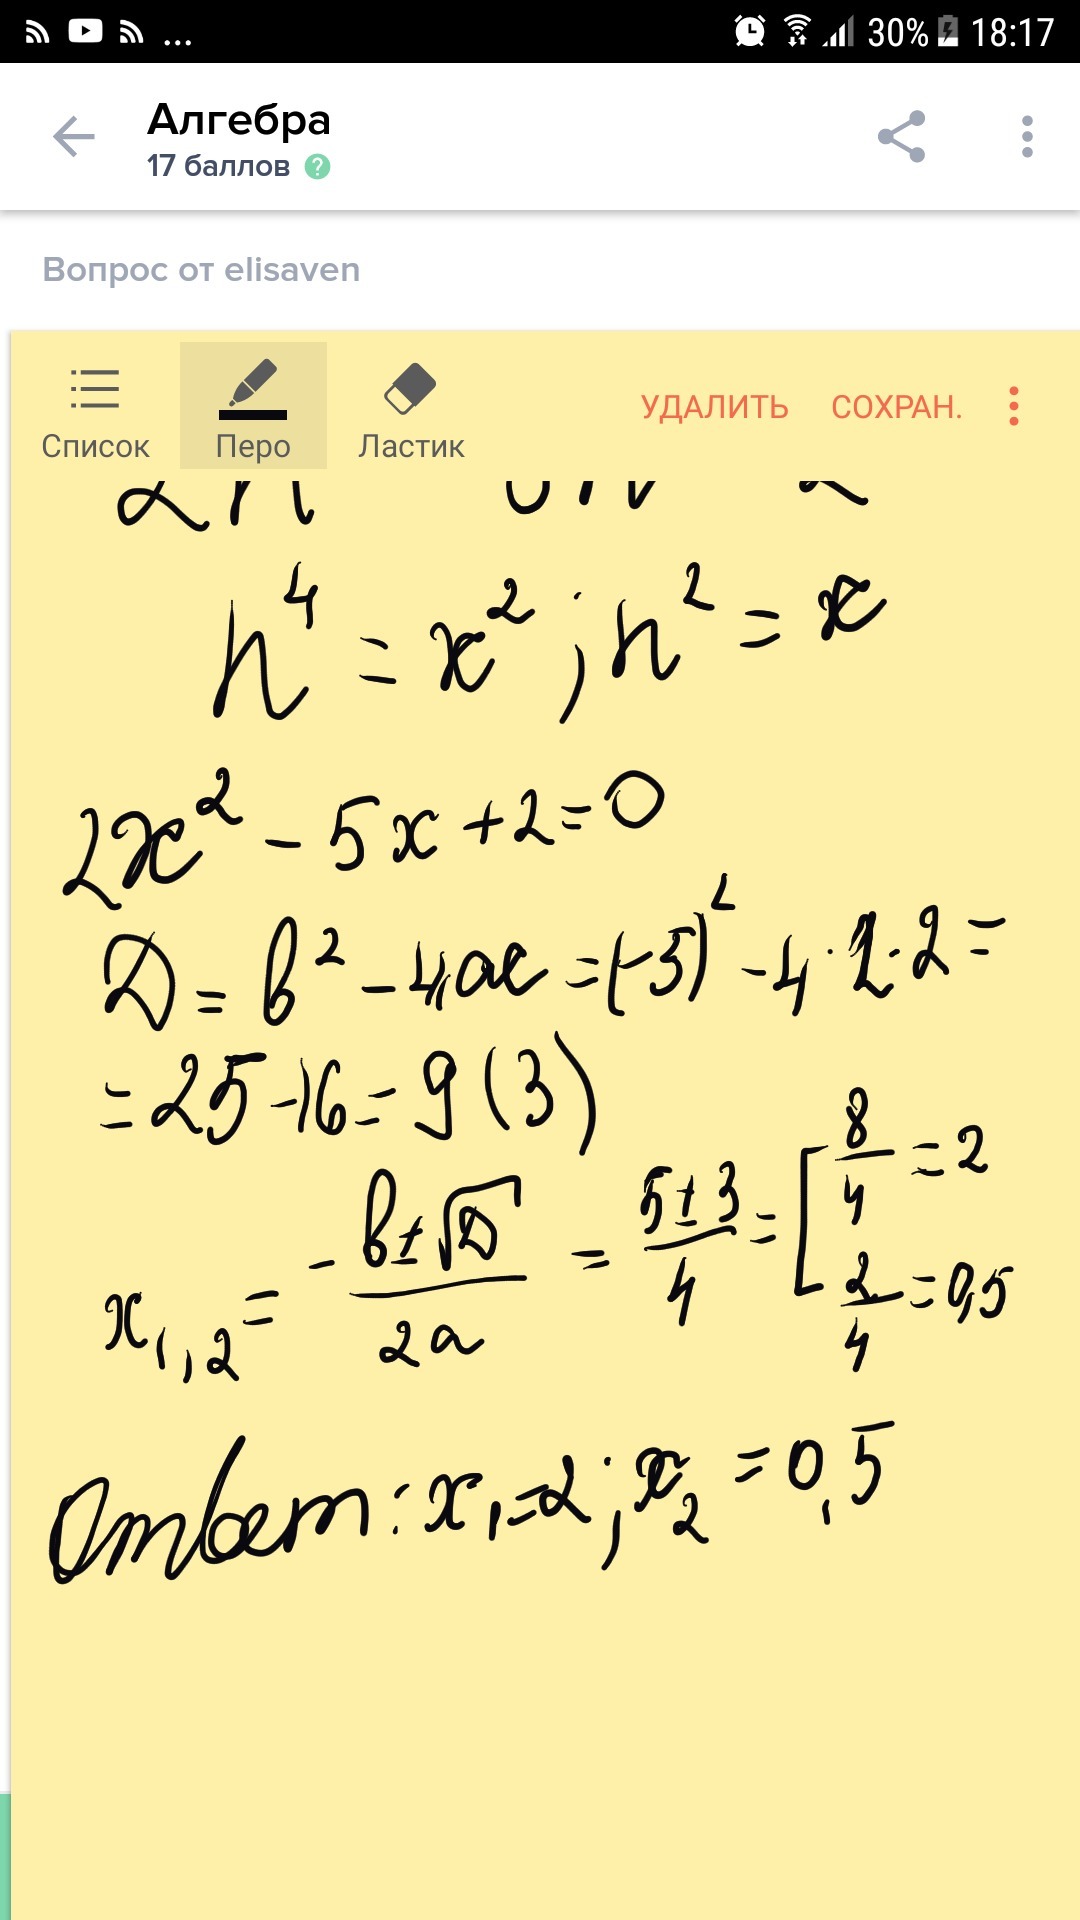 ... 30% 18:17
Алгебра
17 баллов ?
Вопрос от elisaven
Список Перо Ластик УДАЛИТЬ СОХРАН.
n⁴ = x² ; n² = x
2x² - 5x + 2 = 0
D = b² - 4ac = (-5)² - 4 · 2 · 2 =
= 25 - 16 = 9 (3)
x₁,₂ = -b ± √D / 2a = 5 ± 3 / 4 = [ 8/4 = 2
2/4 = 0,5
Ответ: x₁ = 2 ; x₂ = 0,5